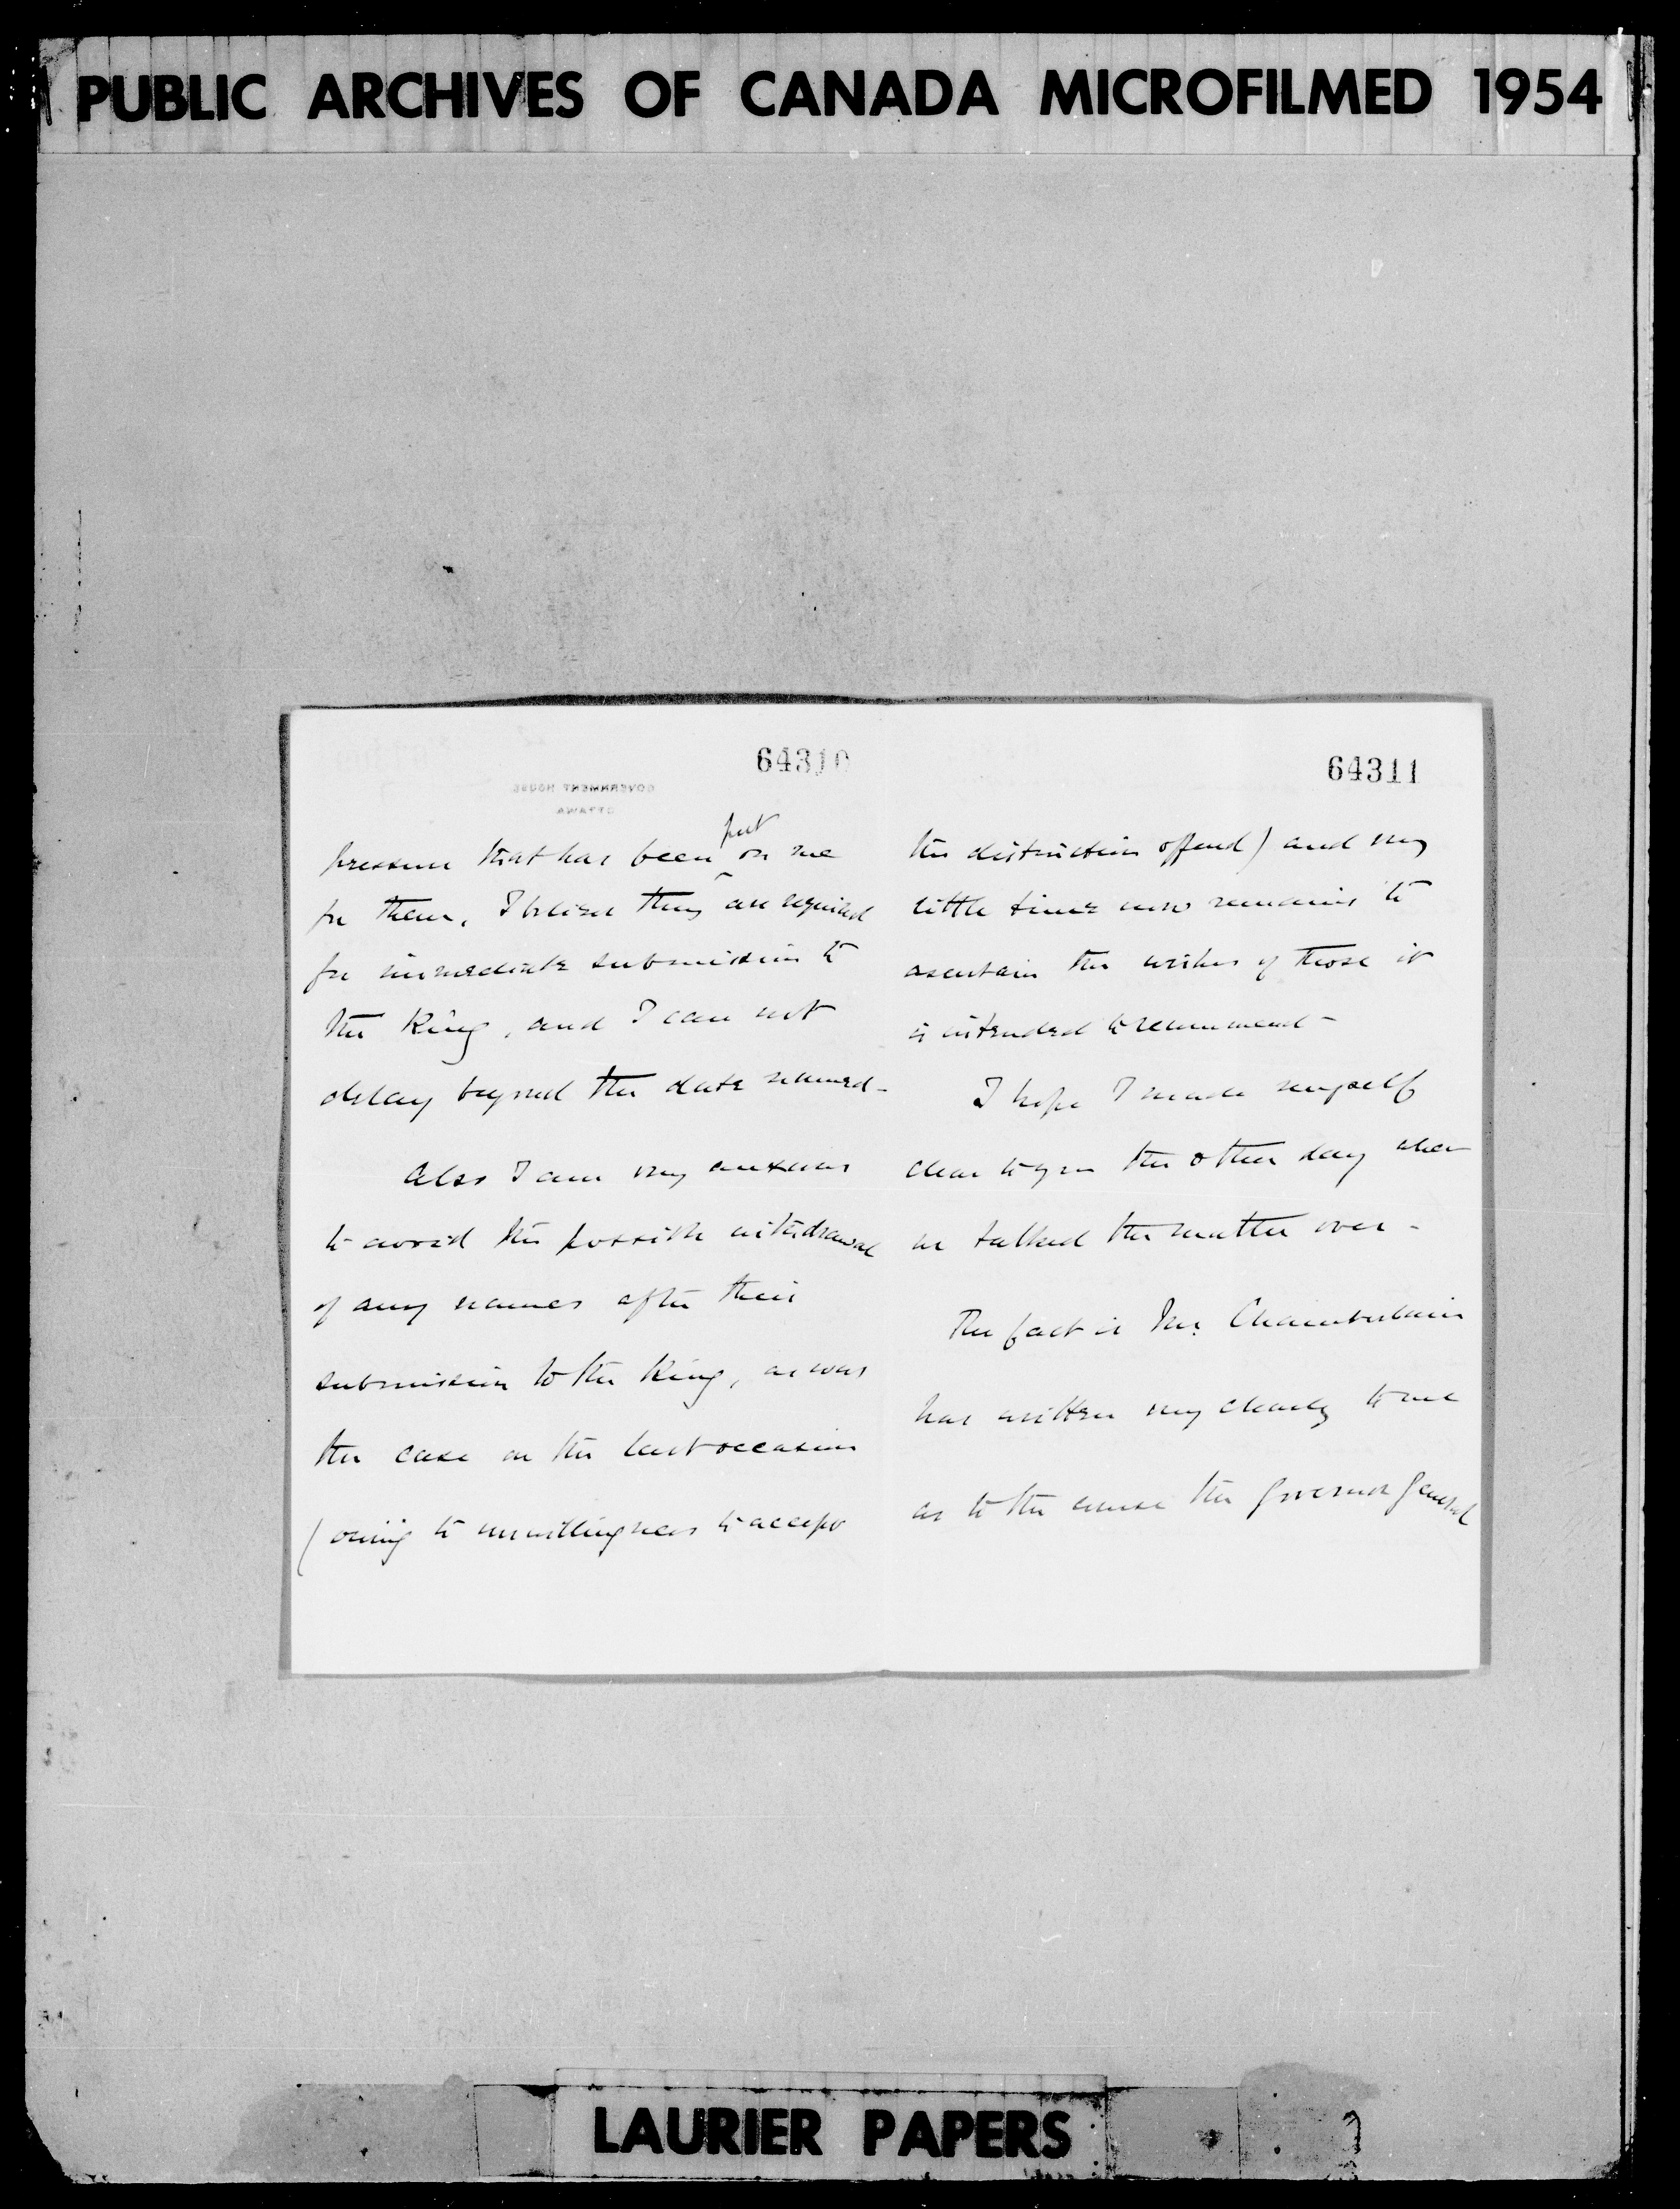 PUBLIC ARCHIVES OF CANADA MICROFILMED 1954
64310
GOVERNMENT HOUSE
OTTAWA
put
pressure that has been ^ on me
for them. I believe they are required
for immediate submission to
the King, and I can not
delay beyond the date named -
Also I am very anxious
to avoid the possible withdrawal
of any names after their
submission to the King, as was
the case on the last occasion
(owing to unwillingness to accept
64311
the distinction offered) and very
little time now remains to
ascertain the wishes of those it
is intended to recommend -
I hope I made myself
clear to you the other day when
we talked the matter over -
The fact is Mr. Chamberlain
has written very clearly to me
as to the course the Governor General
LAURIER PAPERS